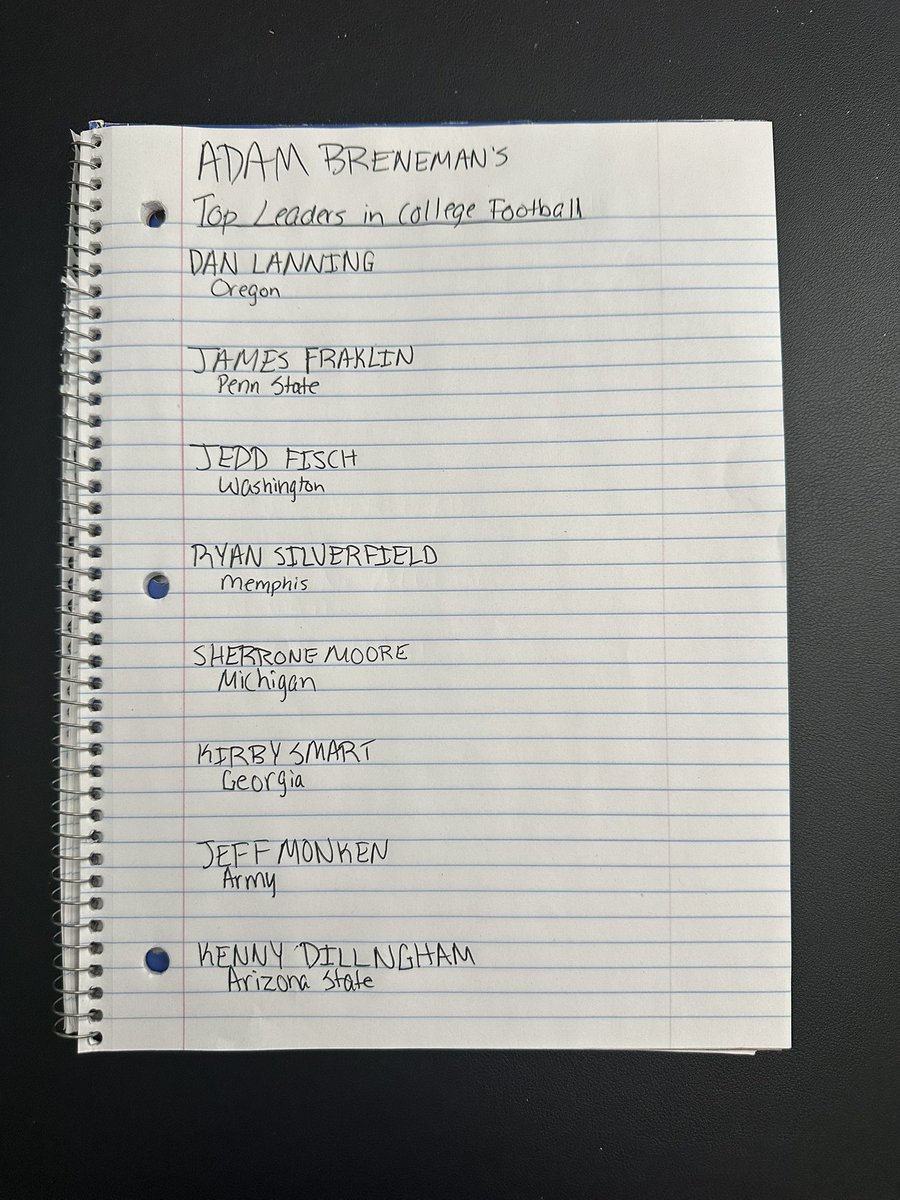 ADAM BRENEMAN'S
Top Leaders in College Football
DAN LANNING
Oregon
JAMES FRAKLIN
Penn State
JEDD FISCH
Washington
RYAN SILVERFIELD
Memphis
SHERRONE MOORE
Michigan
KIRBY SMART
Georgia
JEFF MONKEN
Army
KENNY DILLNGHAM
Arizona State